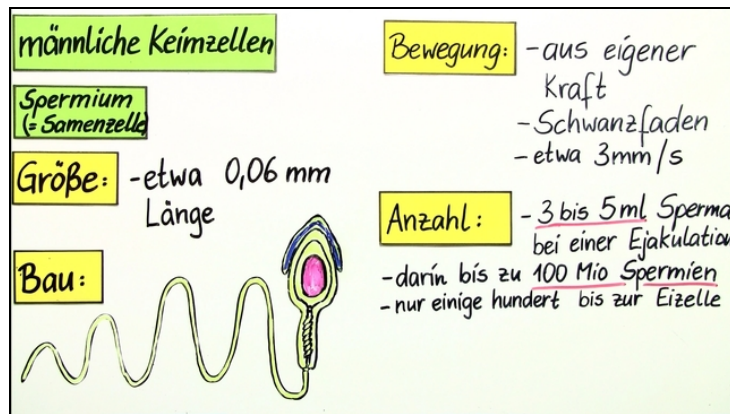 männliche Keimzellen
Spermium
(= Samenzelle)
Größe: - etwa 0,06 mm
Länge
Bau:
Bewegung: - aus eigener
Kraft
- Schwanzfaden
- etwa 3mm/s
Anzahl: - 3 bis 5ml Sperma
bei einer Ejakulation
- darin bis zu 100 Mio Spermien
- nur einige hundert bis zur Eizelle